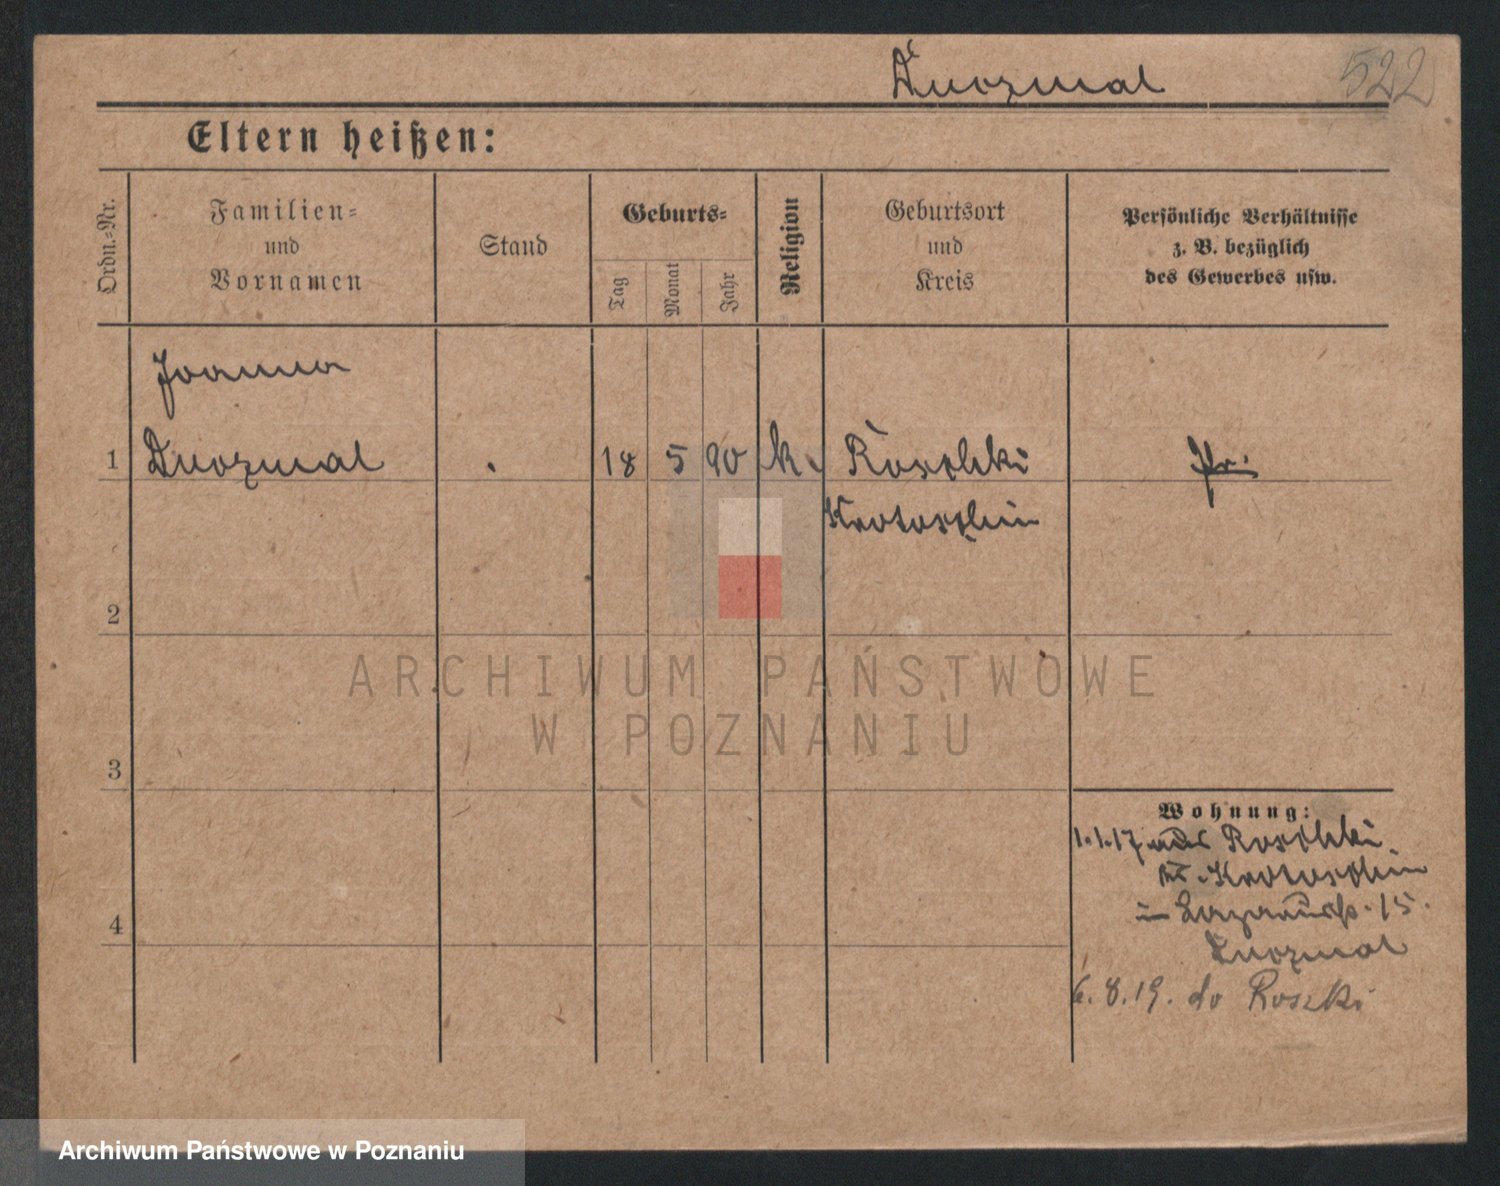 Duczmal
522
Eltern heißen:
Ordn.-Nr.
Familien-
und
Vornamen
Stand
Geburts-
Tag
Monat
Jahr
Religion
Geburtsort
und
Kreis
Persönliche Verhältnisse
z. B. bezüglich
des Gewerbes usw.
Joanna
1 Duczmal 18 5 90 k. Roschki Pr.
Krotoschin
2
3
4
Wohnung:
1.1.17 aus Roschki
Kr. Krotoschin
in 15.
Duczmal
6.8.19. do Roszki
ARCHIWUM PAŃSTWOWE
W POZNANIU
Archiwum Państwowe w Poznaniu